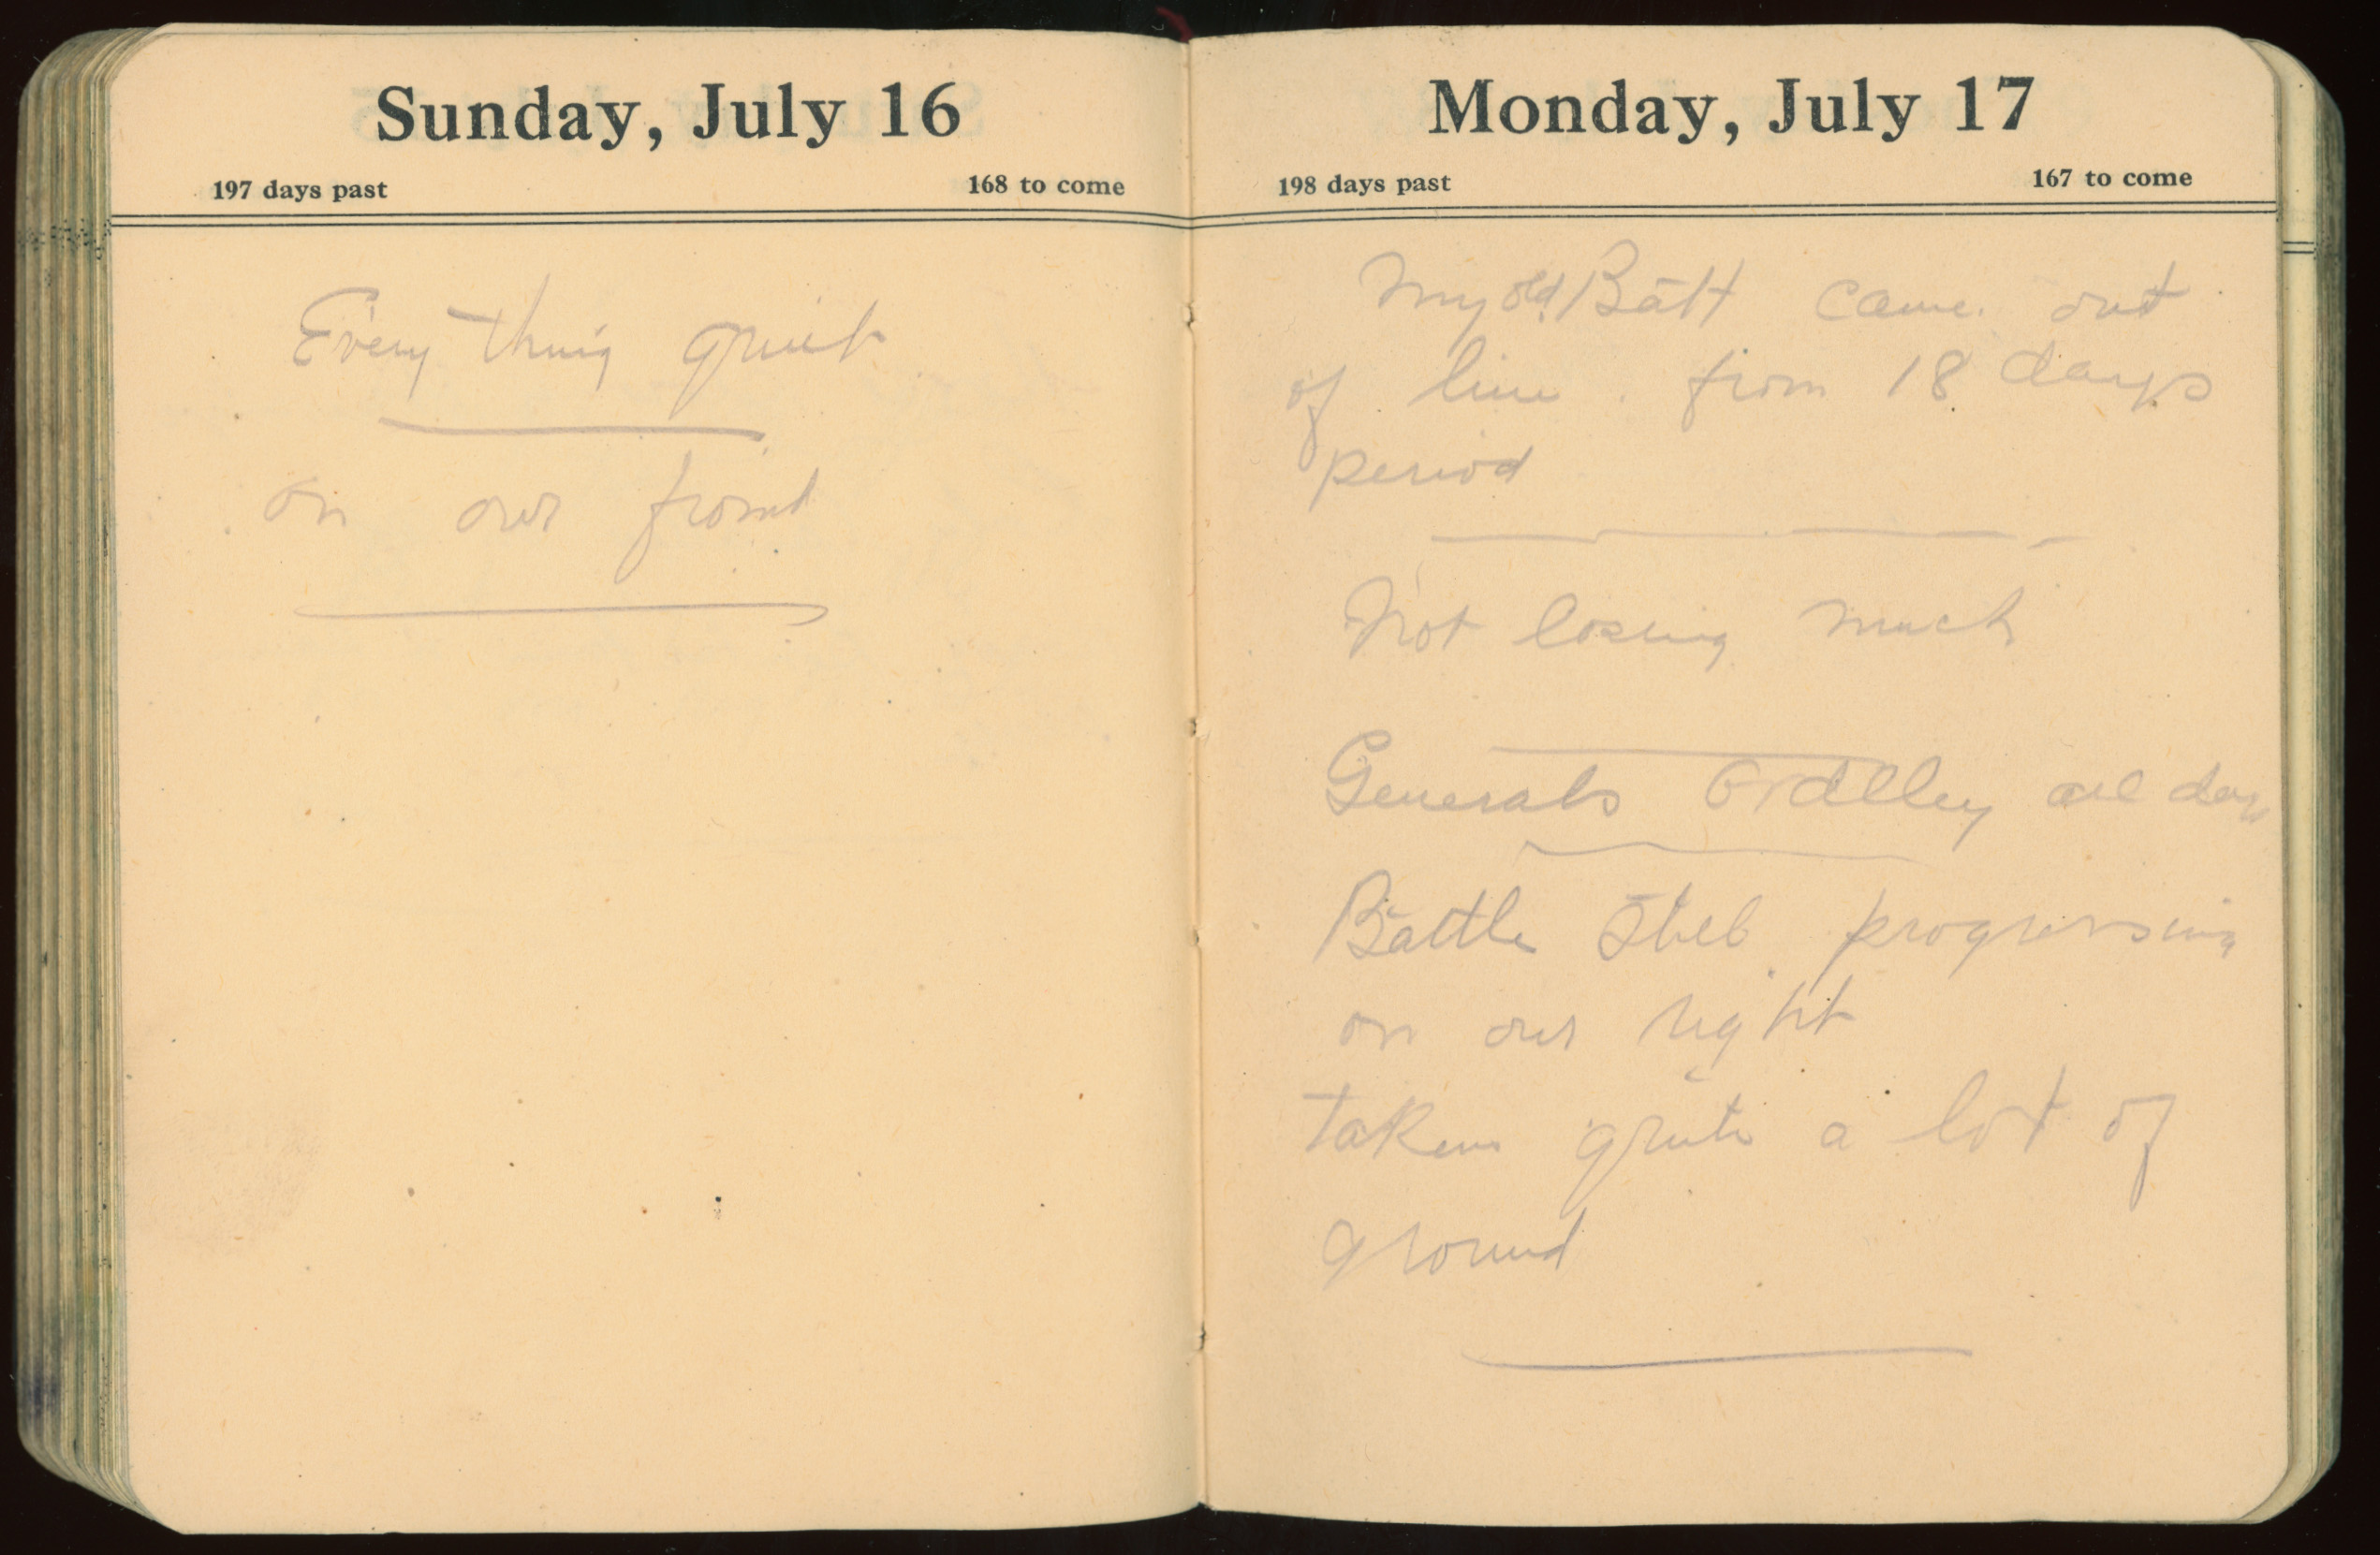 Sunday, July 16
197 days past 168 to come
Every thing quiet
on our front
Monday, July 17
198 days past 167 to come
My old Batt came out
of line from 18 days
period
Not losing much
Generals Ordlley all day
Battle Still progressing
on our right
taken quite a lot of
ground